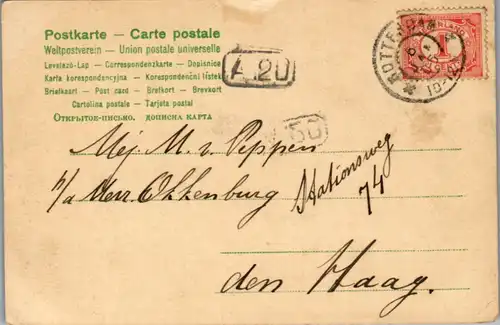 Postkarte – Carte postale
Weltpostverein – Union postale universelle
Levelező-Lap – Correspondenzkarte – Dopisnice
Karta korespondencyjna – Korespondenční lístek
Brielkaart – Post card – Brefkort – Brevkort
Cartolina postale – Tarjeta postal
Открытое-письмо. дописна карта
A.20
ROTTERDAM
10-12
Mej M. v. Peppen
p/a Heer Okkenburg
Stationsweg
74
den Haag.